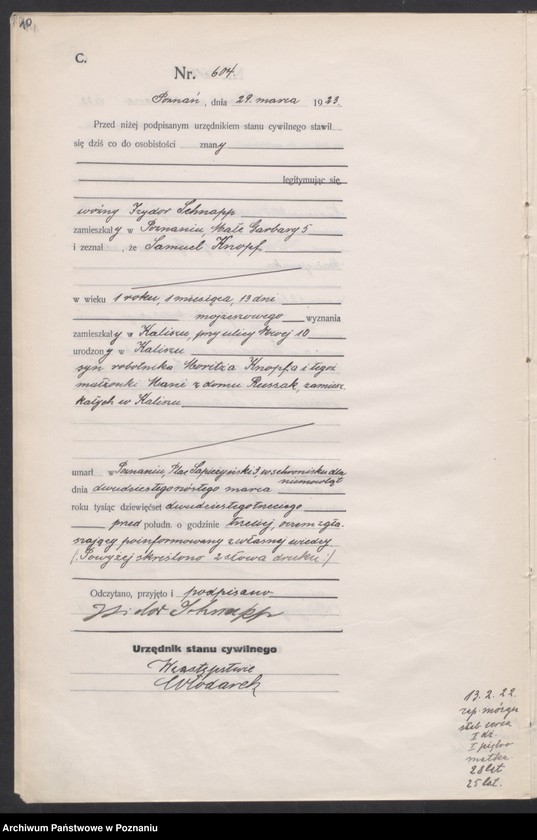 C.
Nr. 604.
Poznań, dnia 29. marca 1923.
Przed niżej podpisanym urzędnikiem stanu cywilnego stawił
się dziś co do osobistości znany
legitymując się
Izydor Schnapp
zamieszkały w Poznaniu, Małe Garbary 5
i zeznał, że Samuel Knopf
w wieku 1 roku, 1 miesiąca, 13 dni
mojżeszowego wyznania
zamieszkały w Kaliszu, przy ulicy Nowej 10
urodzony w Kaliszu
syn robotnika Moritza Knopfa i tegoż
małżonki Mani z domu Russak, zamiesz-
kałych w Kaliszu
umarł w Poznaniu, Plac Sapieżyński 3, w schronisku dla
niemowląt
dnia dwudziestego marca
roku tysiąc dziewięćset dwudziestego trzeciego
przed połudn. o godzinie trzeciej, o czem zgła-
szający poinformowany z własnej wiedzy
(Powyżej skreślono 2 słowa druku.)
Odczytano, przyjęto i podpisano
Isidor Schnapp
Urzędnik stanu cywilnego
W zastępstwie
Włodarek
13. 2. 22.
I dz.
I piętro
matka
28 lat
25 lat.
Archiwum Państwowe w Poznaniu